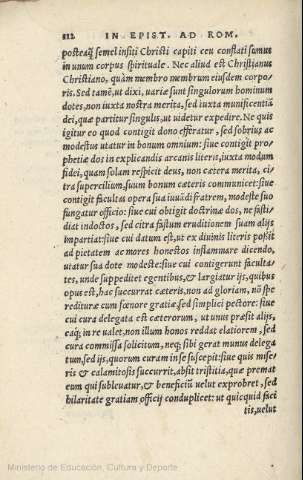 112 IN EPIST. AD ROM.
posteaq̃ semel insiti Christi capiti ceu conflati sumus
in unum corpus spirituale. Nec aliud est Christianus
Christiano, quàm membro membrum eiusdem corpo-
ris. Sed tamẽ, ut dixi, uariæ sunt singulorum hominum
dotes, non iuxta nostra merita, sed iuxta munificentiã
dei, quæ partitur singulis, ut uidetur expedire. Ne quis
igitur eo quod contigit dono efferatur, sed sobrius ac
modestus utatur in bonum omnium: siue contigit pro-
phetiæ dos in explicandis arcanis literis, iuxta modum
fidei, quam solam respicit deus, non cætera merita, ci-
tra supercilium, suum bonum cæteris communicet: siue
contigit facultas opera sua iuuãdi fratrem, modeste suo
fungatur officio: siue cui obtigit doctrinæ dos, ne fasti-
diat indoctos, sed citra fastum eruditionem suam alijs
impartiat: siue cui datum est, ut ex diuinis literis possit
ad pietatem ac mores honestos inflammare dicendo,
utatur sua dote modeste: siue cui contigerunt faculta-
tes, unde suppeditet egentibus, & largiatur ijs, quibus
opus est, hac succurrat cæteris, non ad gloriam, nõ spe
rediturae cum fœnore gratiæ, sed simplici pectore: siue
cui cura delegata est cæterorum, ut unus præsit alijs,
eaq́; in re ualet, non illum honos reddat elatiorem, sed
cura commissa solicitum, neq; sibi gerat munus delega
tum, sed ijs, quorum curam in se suscepit: siue quis mise-
ris & calamitosis succurrit, absit tristitia, quæ premat
eum qui subleuatur, & beneficiũ uelut exprobret, sed
hilaritate gratiam officij conduplicet: ut quicquid faci
tis, uelut
Ministerio de Educación, Cultura y Deporte